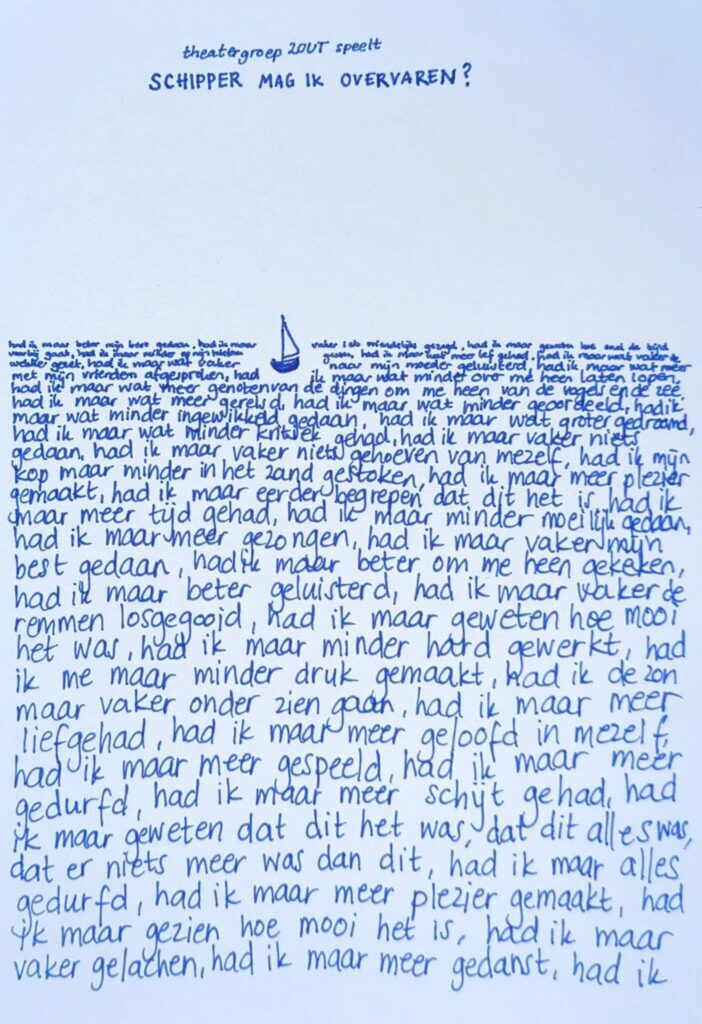 theatergroep ZOUT speelt
SCHIPPER MAG IK OVERVAREN?
had ik maar beter mijn best gedaan, had ik maar vaker i
gezegd, had ik maar geweten hoe snel de tijd
voorbij gaat, had ik maar minder op mijn telefoon
gezeten, had ik maar wat meer lef gehad, had ik maar wat vaker de
wekker gezet, had ik maar wat vaker naar mijn moeder geluisterd, had ik maar wat meer
met mijn vrienden afgesproken, had ik maar wat minder over me heen laten lopen,
had ik maar wat meer genoten van de dingen om me heen van de vogels en de zee
had ik maar wat meer gereisd, had ik maar wat minder geoordeeld, had ik
maar wat minder ingewikkeld gedaan, had ik maar wat groter gedroomd,
had ik maar wat minder kritiek gehad, had ik maar vaker niets
gedaan, had ik maar vaker niets gehoeven van mezelf, had ik mijn
kop maar minder in het zand gestoken, had ik maar meer plezier
gemaakt, had ik maar eerder begrepen dat dit het is, had ik
maar meer tijd gehad, had ik maar minder moeilijk gedaan,
had ik maar meer gezongen, had ik maar vaker mijn
best gedaan, had ik maar beter om me heen gekeken,
had ik maar beter geluisterd, had ik maar vaker de
remmen losgegooid, had ik maar geweten hoe mooi
het was, had ik maar minder hard gewerkt, had
ik me maar minder druk gemaakt, had ik de zon
maar vaker onder zien gaan, had ik maar meer
liefgehad, had ik maar meer geloofd in mezelf,
had ik maar meer gespeeld, had ik maar meer
gedurfd, had ik maar meer schijt gehad, had
ik maar geweten dat dit het was, dat dit alles was,
dat er niets meer was dan dit, had ik maar alles
gedurfd, had ik maar meer plezier gemaakt, had
ik maar gezien hoe mooi het is, had ik maar
vaker gelachen, had ik maar meer gedanst, had ik